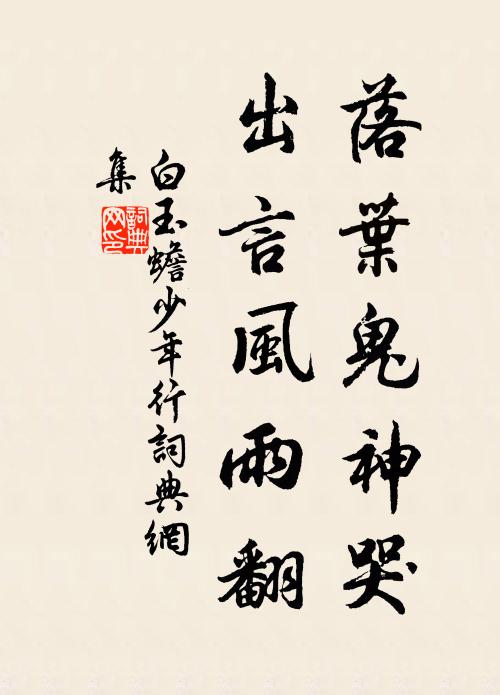 落葉鬼神哭
出言風雨翻
白玉蟾少年行詞典網
集
詞典
网印